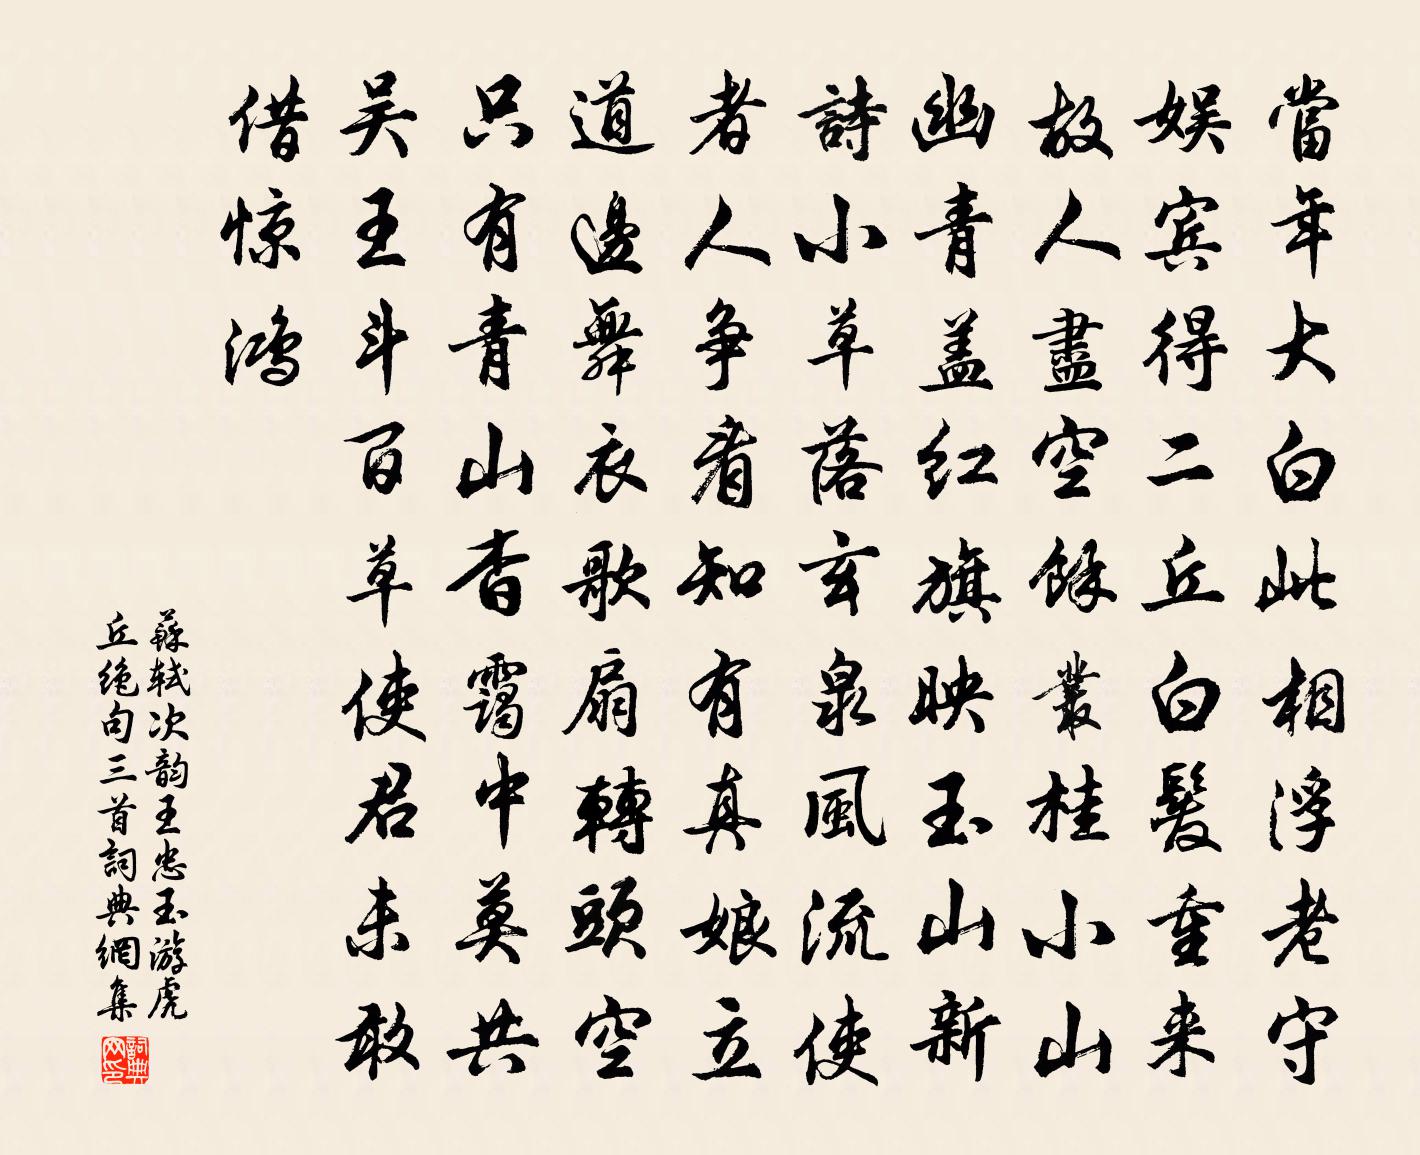 當年大白此相浮老守
娱宾得二丘白髮重来
故人盡空餘叢桂小山
幽青盖红旗映玉山新
詩小草落玄泉風流使
者人争看知有真娘立
道邊舞衣歌扇轉頭空
只有青山杳靄中莫共
吴王斗百草使君未敢
借惊鸿
蘇轼次韵王忠玉游虎
丘绝句三首詞典網集
詞典网印